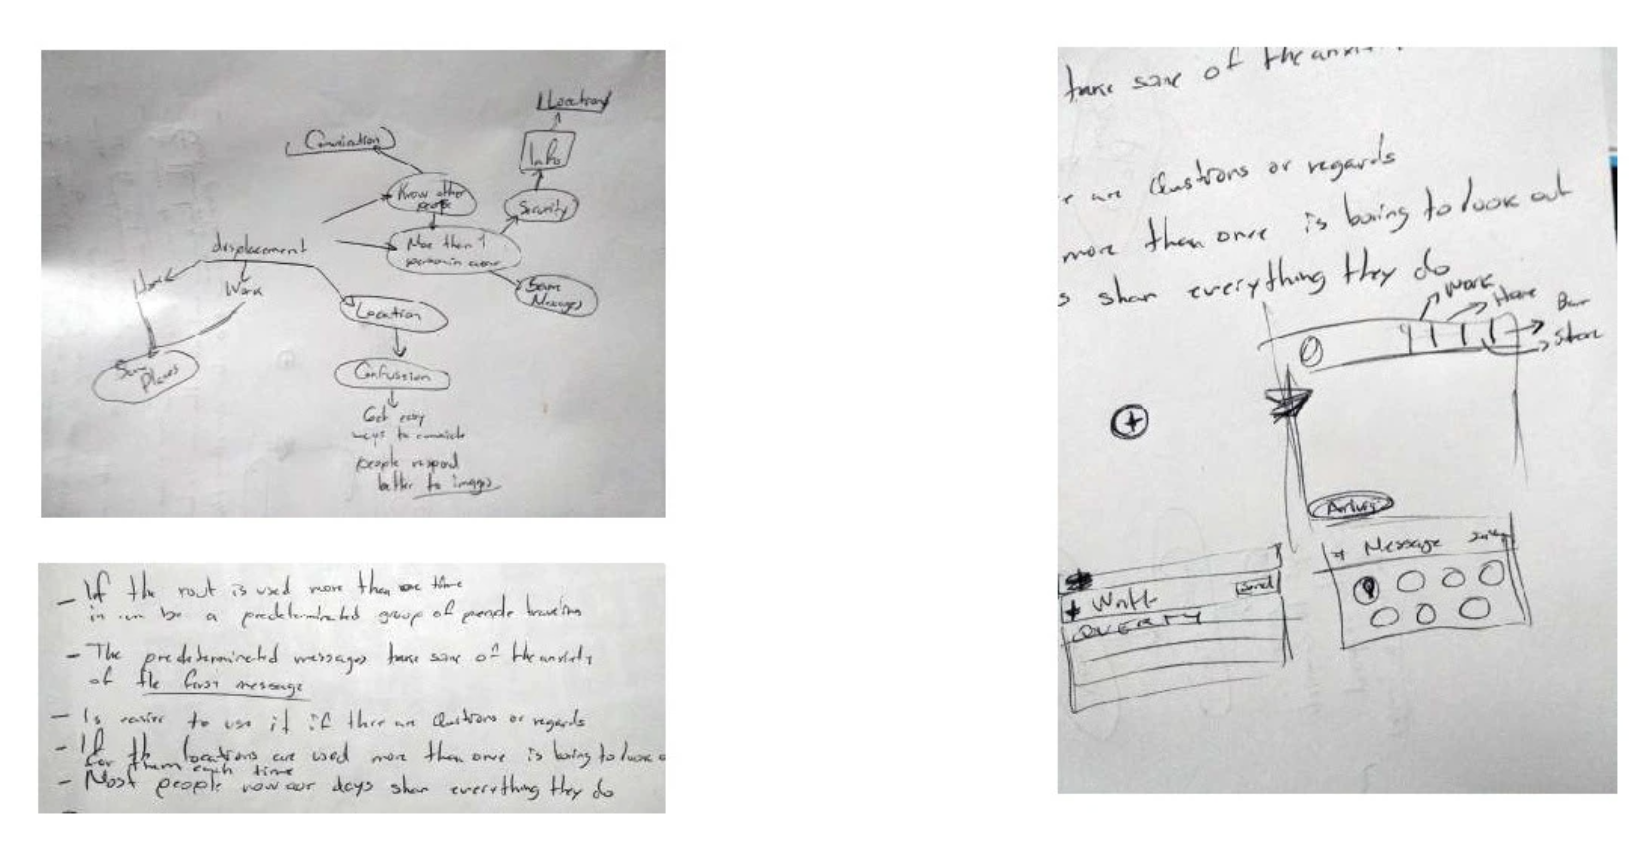 Location
Info
Comunication
Know other people
Security
More than 1
person in
displacement
Home
Work
Same Messages
Location
Same Places
Confussion
Get easy
ways to
people respond
better to images
- If the rout is used more than one time
be a predeterminated group of people
- The predeterminated messages take some of the anxiety
of the first message
- Is easier to use it if ther are Questions or regards
- If the locations are used more than once is boring to look o
for them each time
- Most people now our days shar everything they do
take some of the anxi
r are Questions or regards
more than once is boring to look out
s shar everything they do
Work
Home
Bar
+
Message
Send
QUERTY